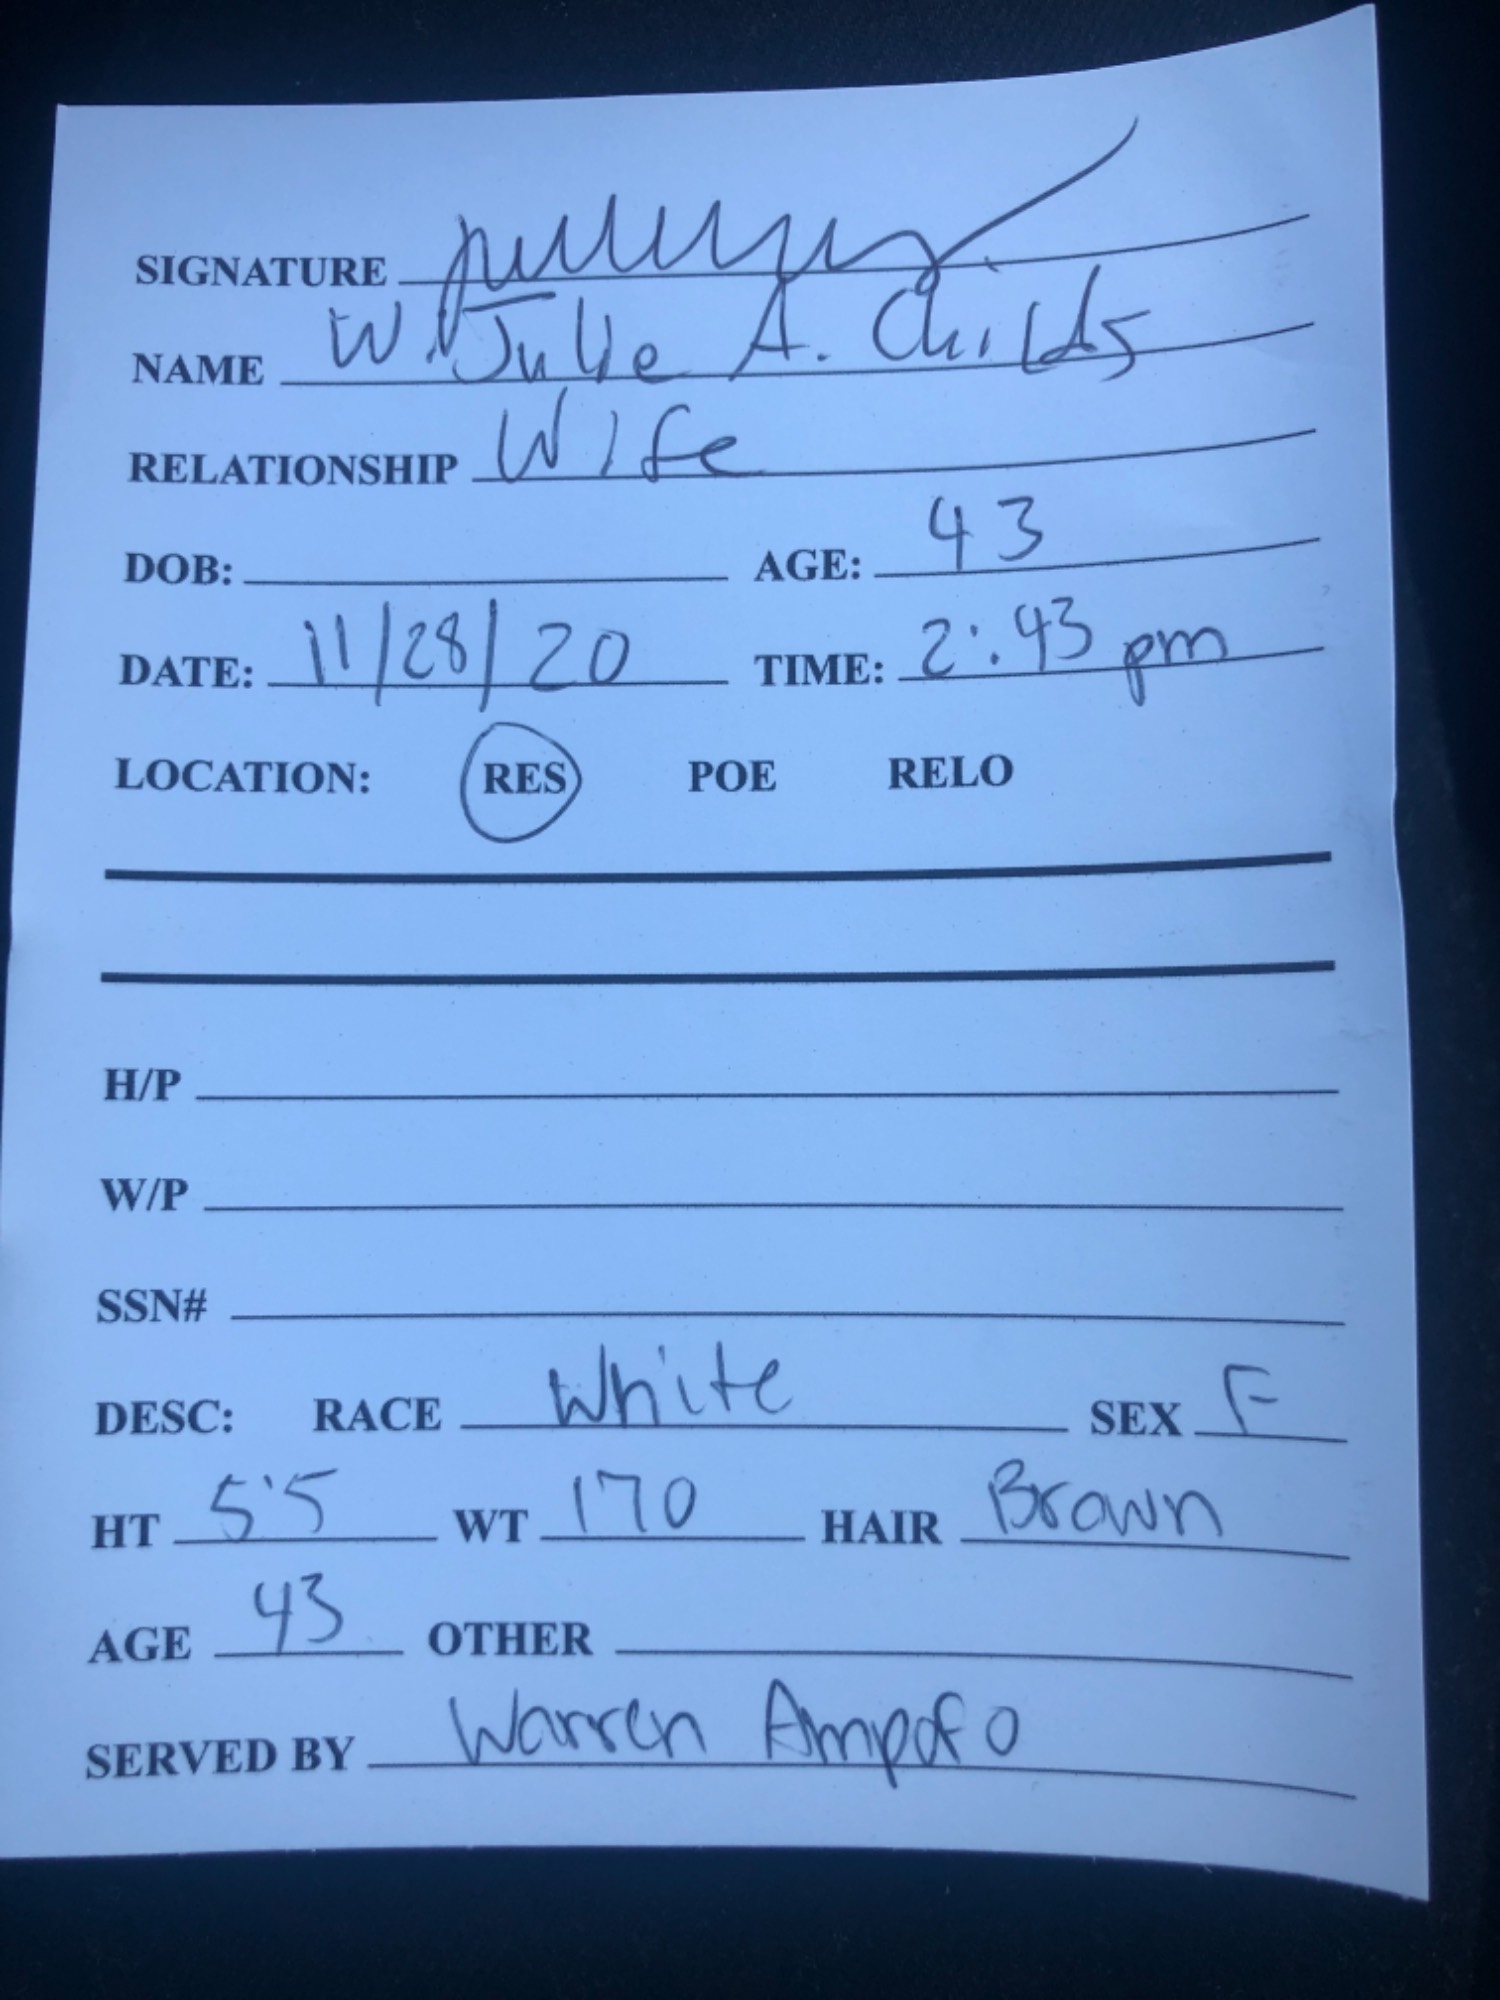 SIGNATURE
NAME W. Julie A. Childs
RELATIONSHIP Wife
DOB: AGE: 43
DATE: 11/28/20 TIME: 2:43 pm
LOCATION: RES POE RELO
H/P
W/P
SSN#
DESC: RACE White SEX F
HT 5'5 WT 170 HAIR Brown
AGE 43 OTHER
SERVED BY Warren Ampofo